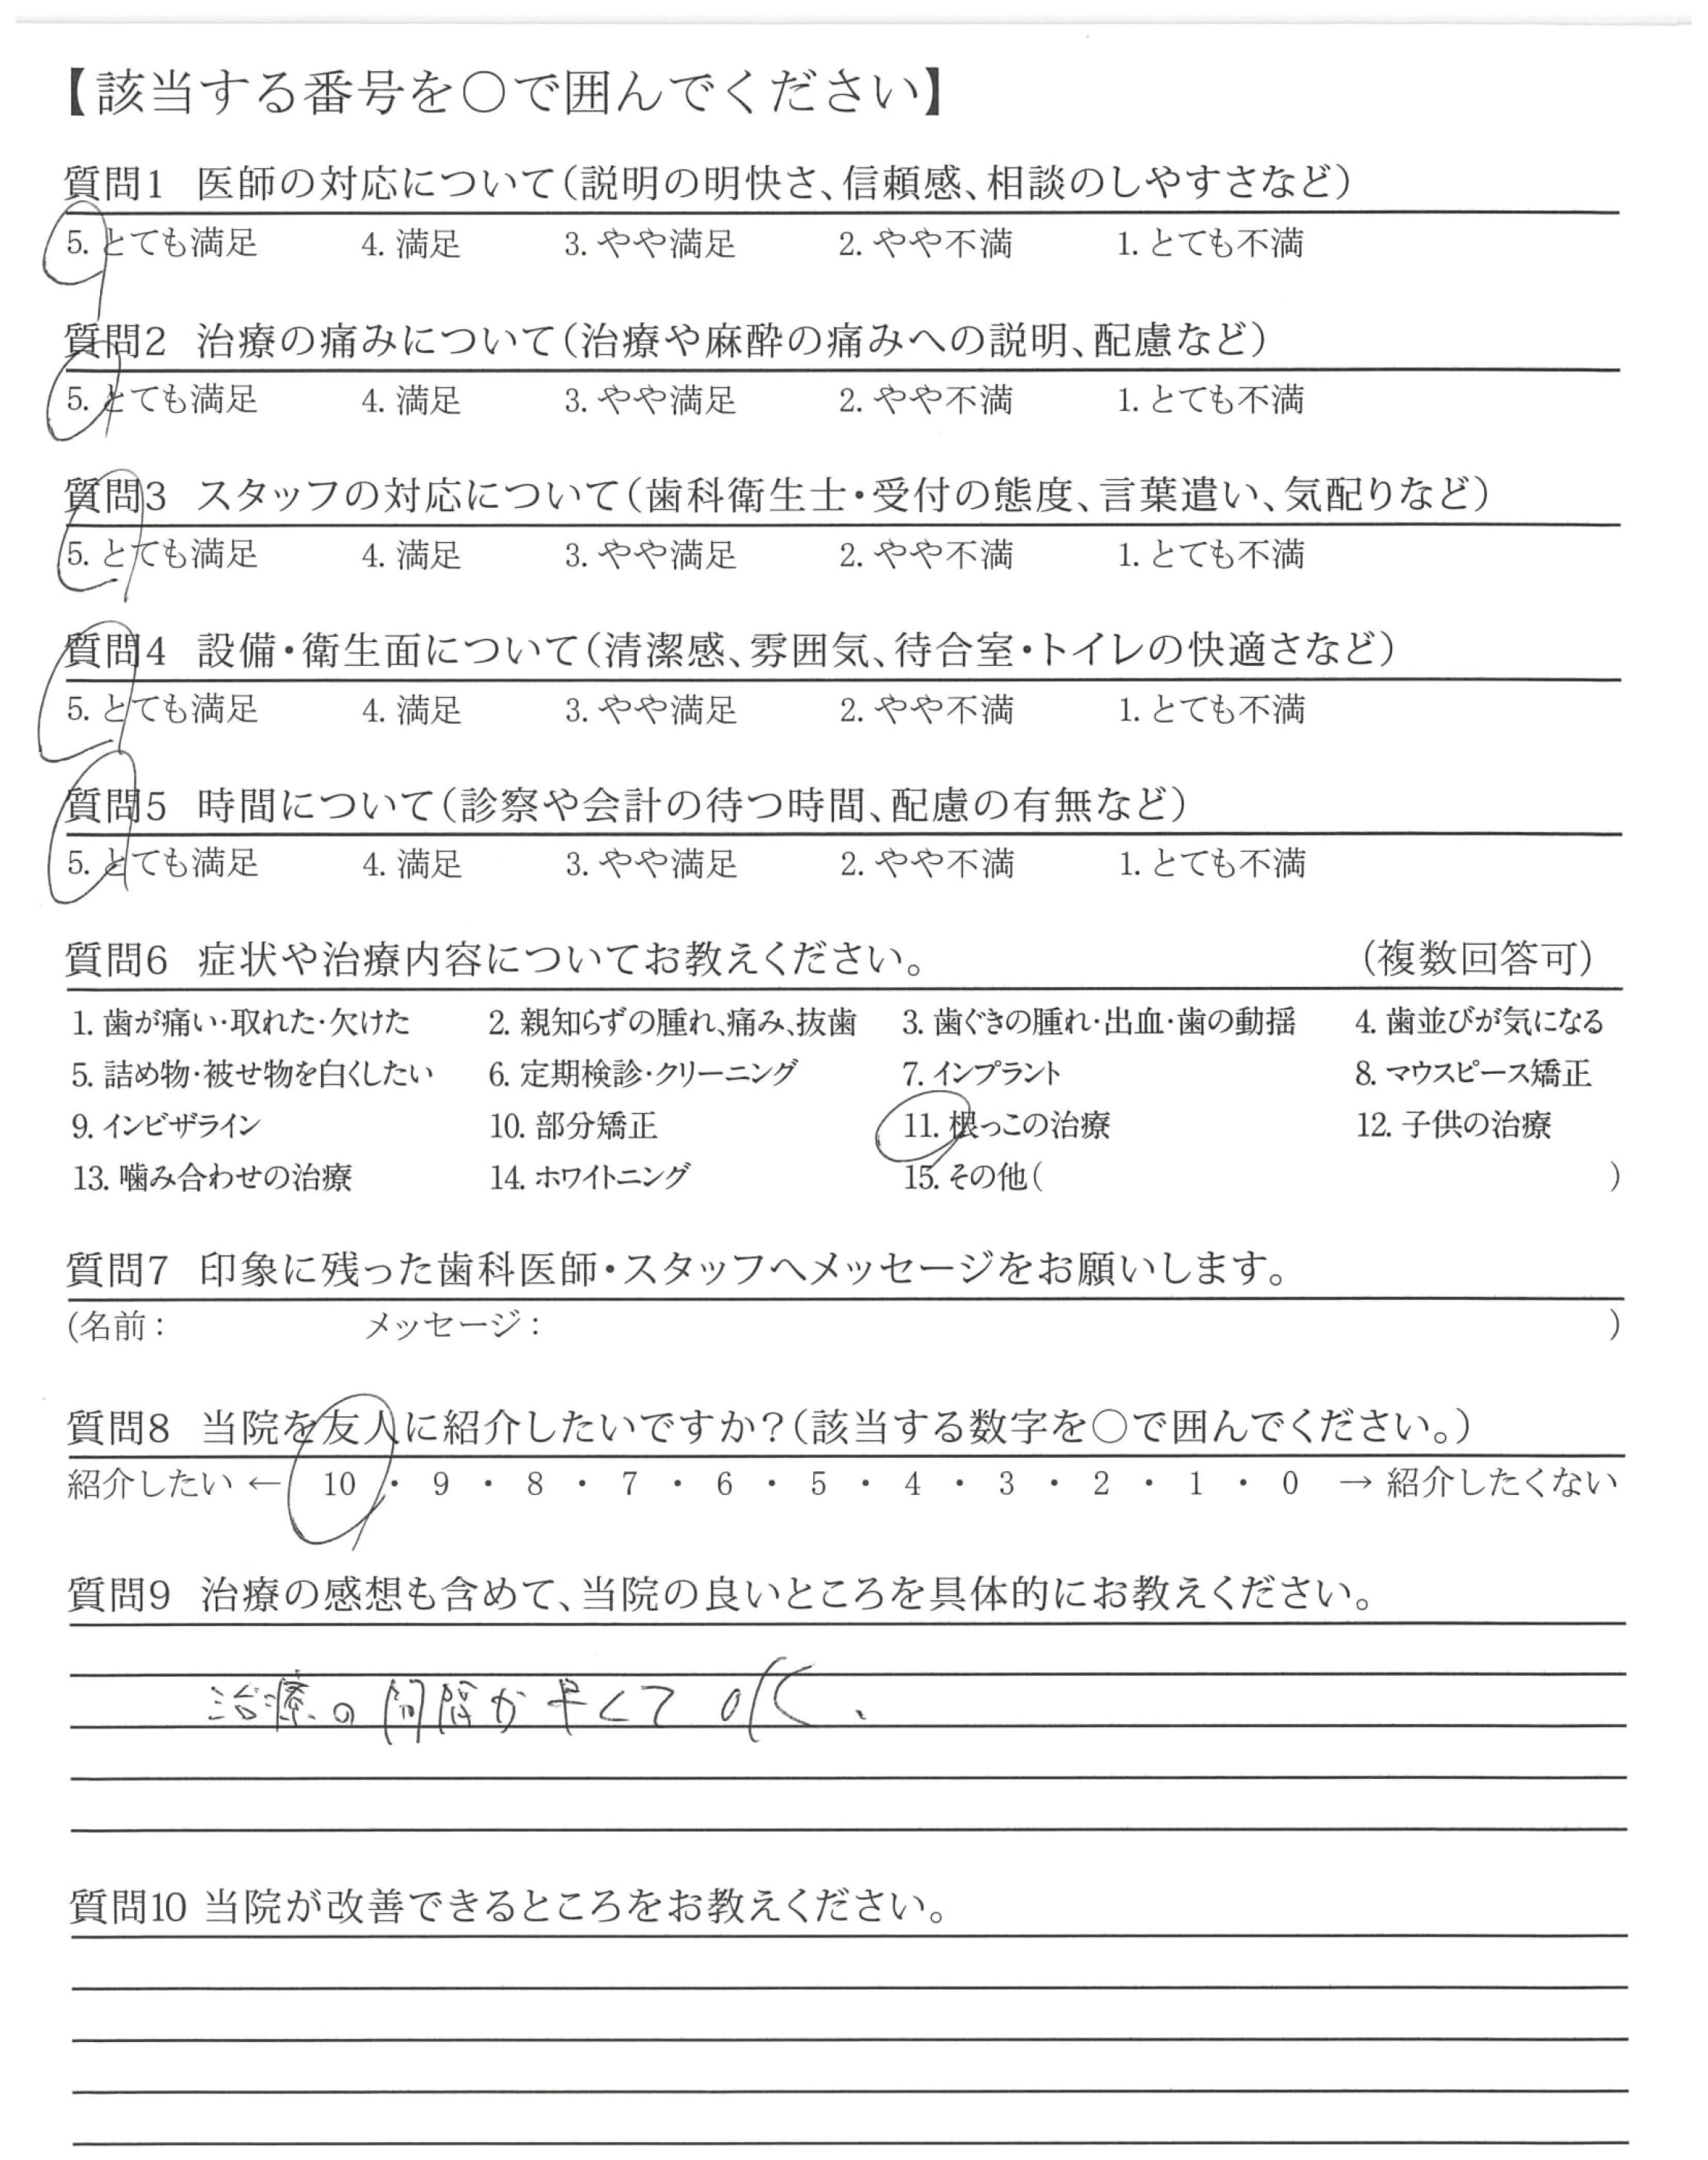 【該当する番号を〇で囲んでください】
質問1 医師の対応について(説明の明快さ、信頼感、相談のしやすさなど)
5. とても満足 4. 満足 3. やや満足 2. やや不満 1. とても不満
質問2 治療の痛みについて(治療や麻酔の痛みへの説明、配慮など)
5. とても満足 4. 満足 3. やや満足 2. やや不満 1. とても不満
質問3 スタッフの対応について(歯科衛生士・受付の態度、言葉遣い、気配りなど)
5. とても満足 4. 満足 3. やや満足 2. やや不満 1. とても不満
質問4 設備・衛生面について(清潔感、雰囲気、待合室・トイレの快適さなど)
5. とても満足 4. 満足 3. やや満足 2. やや不満 1. とても不満
質問5 時間について(診察や会計の待つ時間、配慮の有無など)
5. とても満足 4. 満足 3. やや満足 2. やや不満 1. とても不満
質問6 症状や治療内容についてお教えください。 (複数回答可)
1. 歯が痛い・取れた・欠けた 2. 親知らずの腫れ、痛み、抜歯 3. 歯ぐきの腫れ・出血・歯の動揺 4. 歯並びが気になる
5. 詰め物・被せ物を白くしたい 6. 定期検診・クリーニング 7. インプラント 8. マウスピース矯正
9. インビザライン 10. 部分矯正 11. 根っこの治療 12. 子供の治療
13. 噛み合わせの治療 14. ホワイトニング 15. その他( )
質問7 印象に残った歯科医師・スタッフへメッセージをお願いします。
(名前: メッセージ: )
質問8 当院を友人に紹介したいですか?(該当する数字を〇で囲んでください。)
紹介したい ← 10 ・ 9 ・ 8 ・ 7 ・ 6 ・ 5 ・ 4 ・ 3 ・ 2 ・ 1 ・ 0 → 紹介したくない
質問9 治療の感想も含めて、当院の良いところを具体的にお教えください。
治療の間隔が早くてOK、
質問10 当院が改善できるところをお教えください。